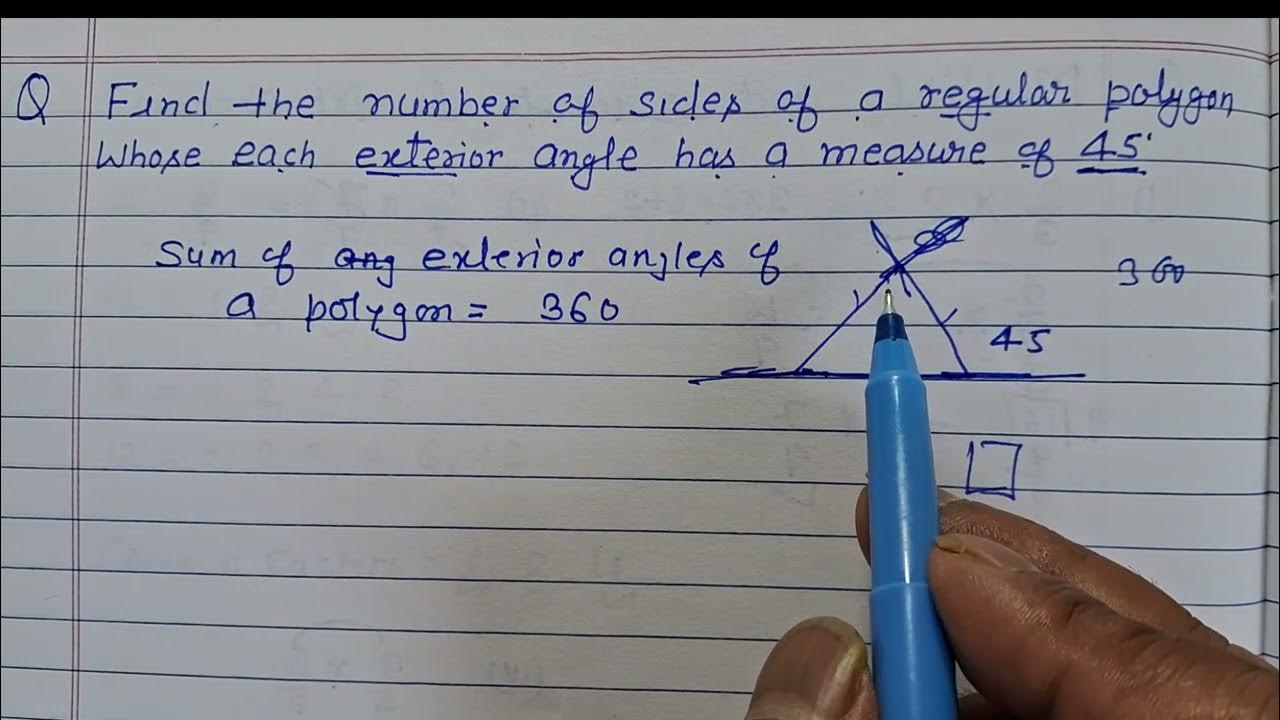 Q Find the number of sides of a regular polygon
Whose each exterior angle has a measure of 45°
Sum of ang exterior angles of
a polygon = 360
360
45